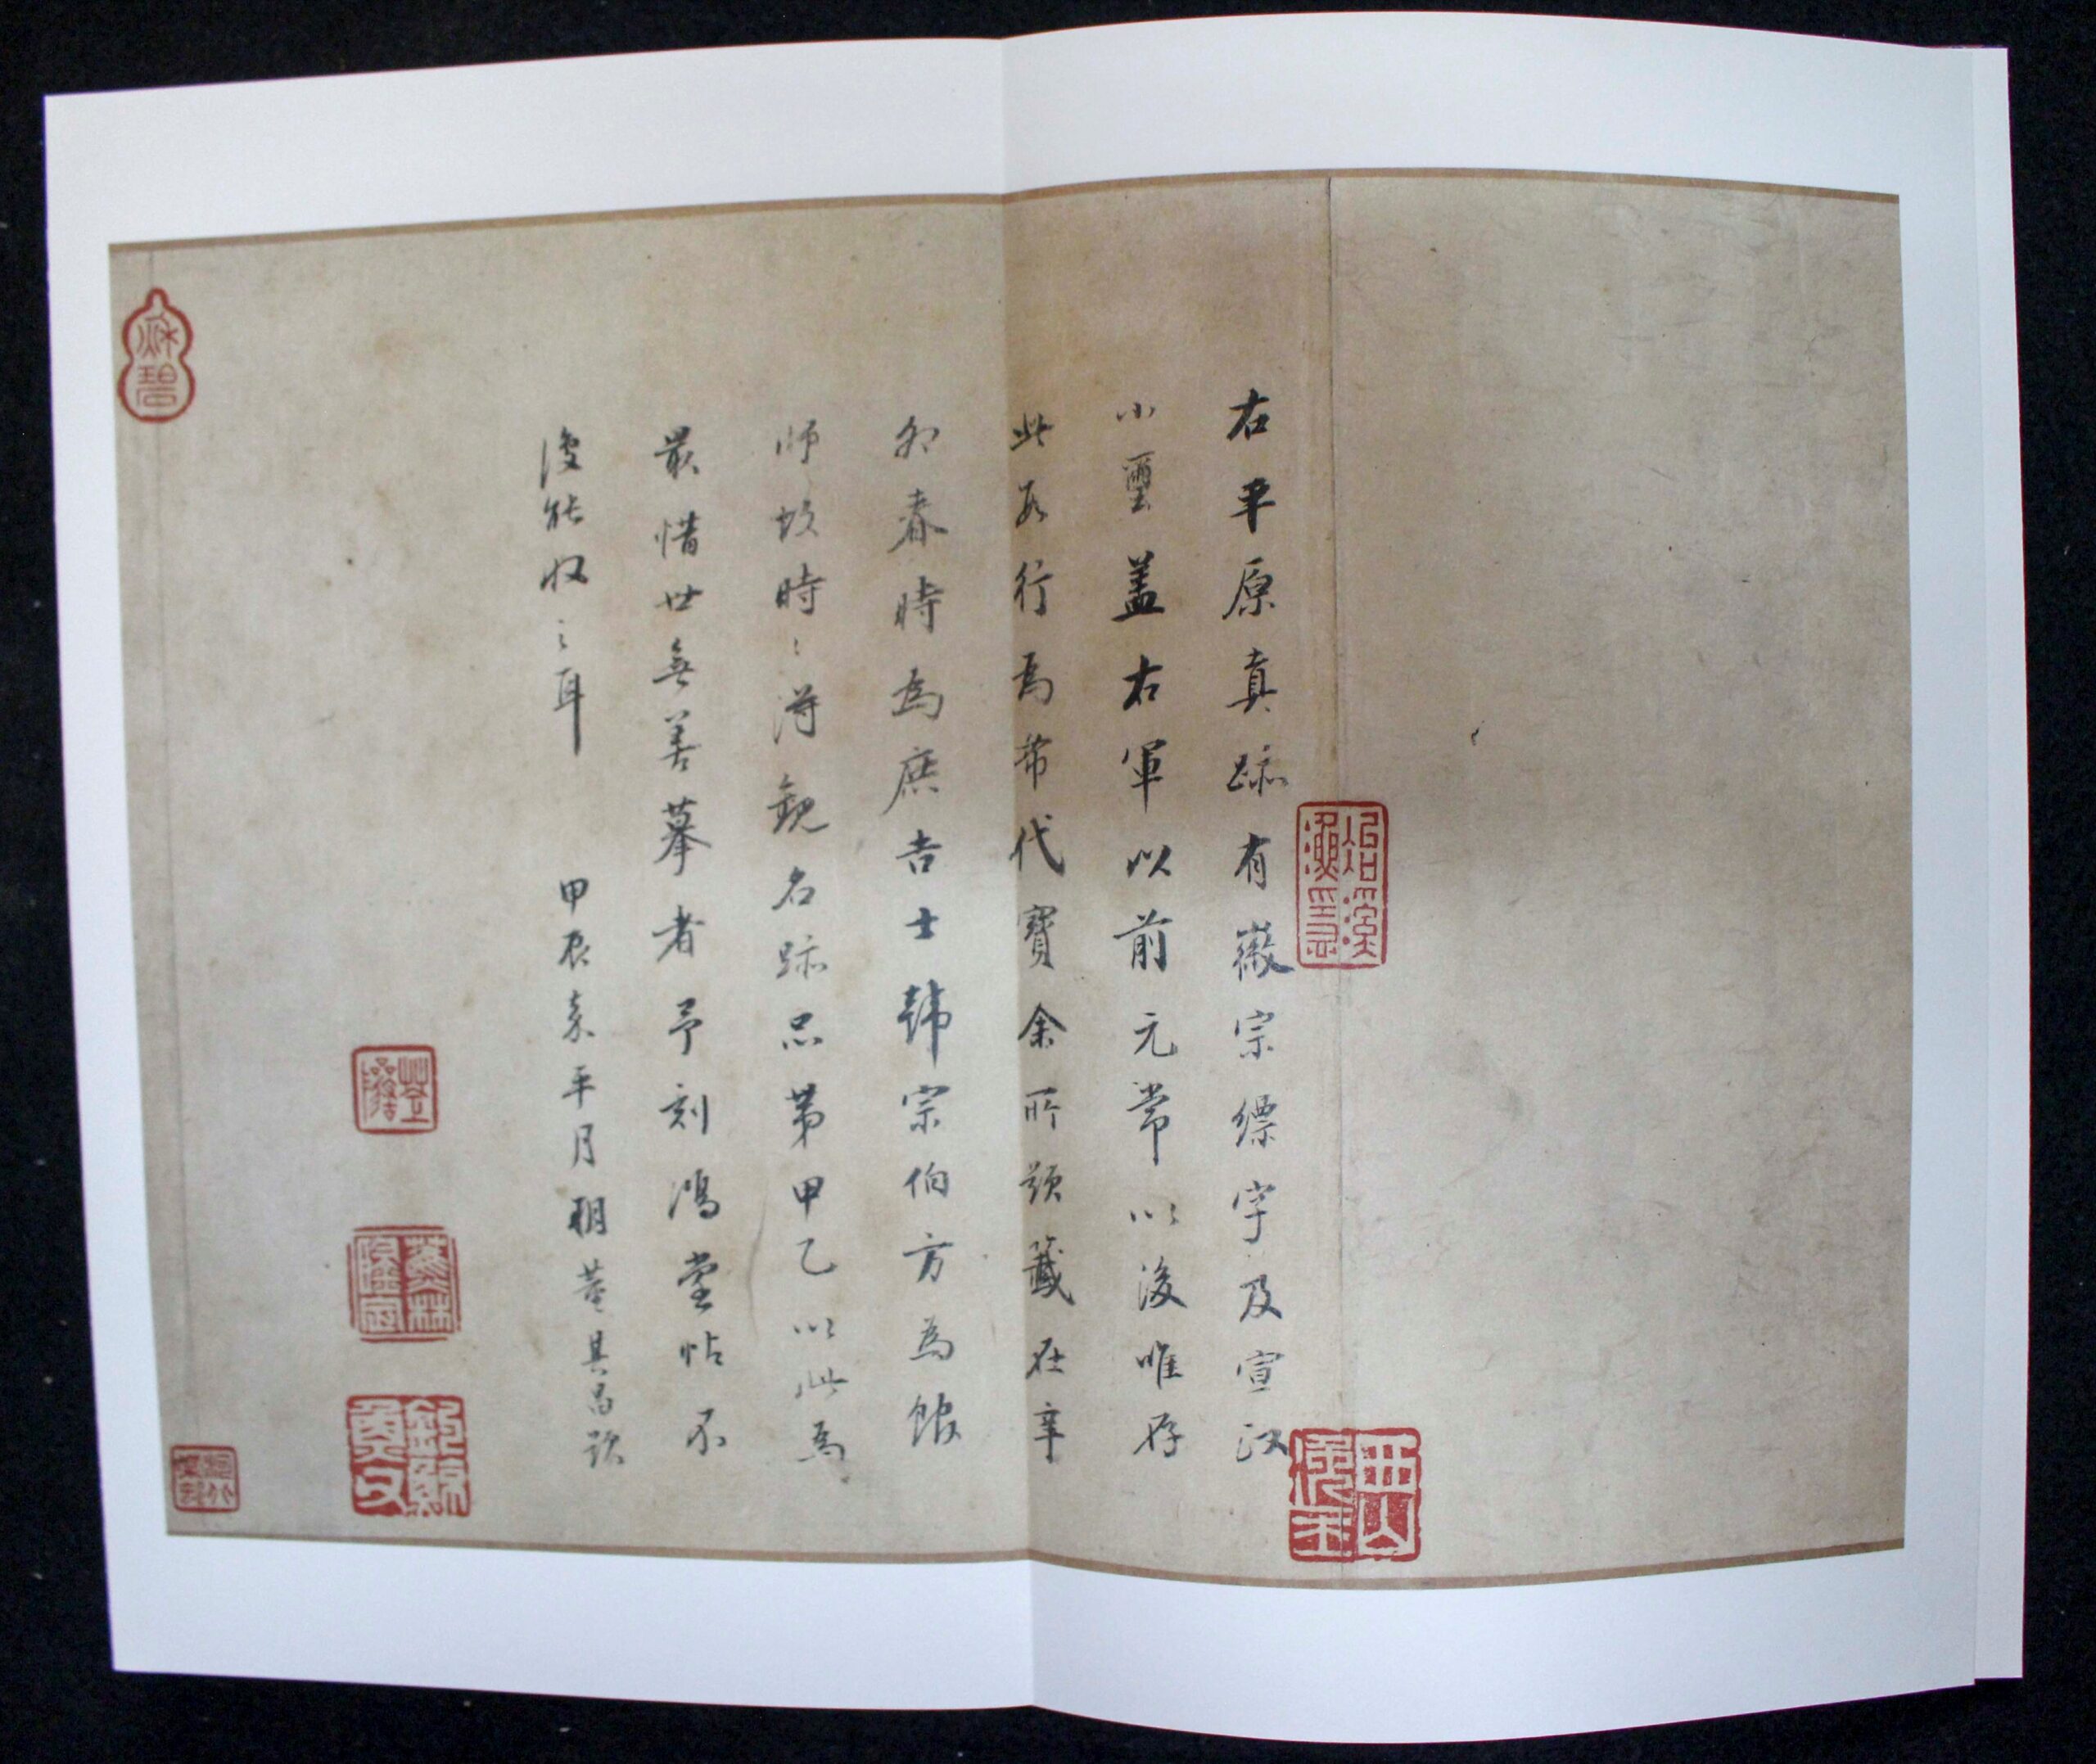 右平原真跡有徽宗縹字及宣政
小璽盖右軍以前元常以後唯存
此數行爲希代寶余所題籤在辛
卯春時爲庶吉士韓宗伯方為館
師故時〻得觀名跡品第甲乙以此爲
最惜世無善摹者予刻鴻堂帖不
復能收之耳
甲辰嘉平月朔董其昌題
和碧
蕉林
西山